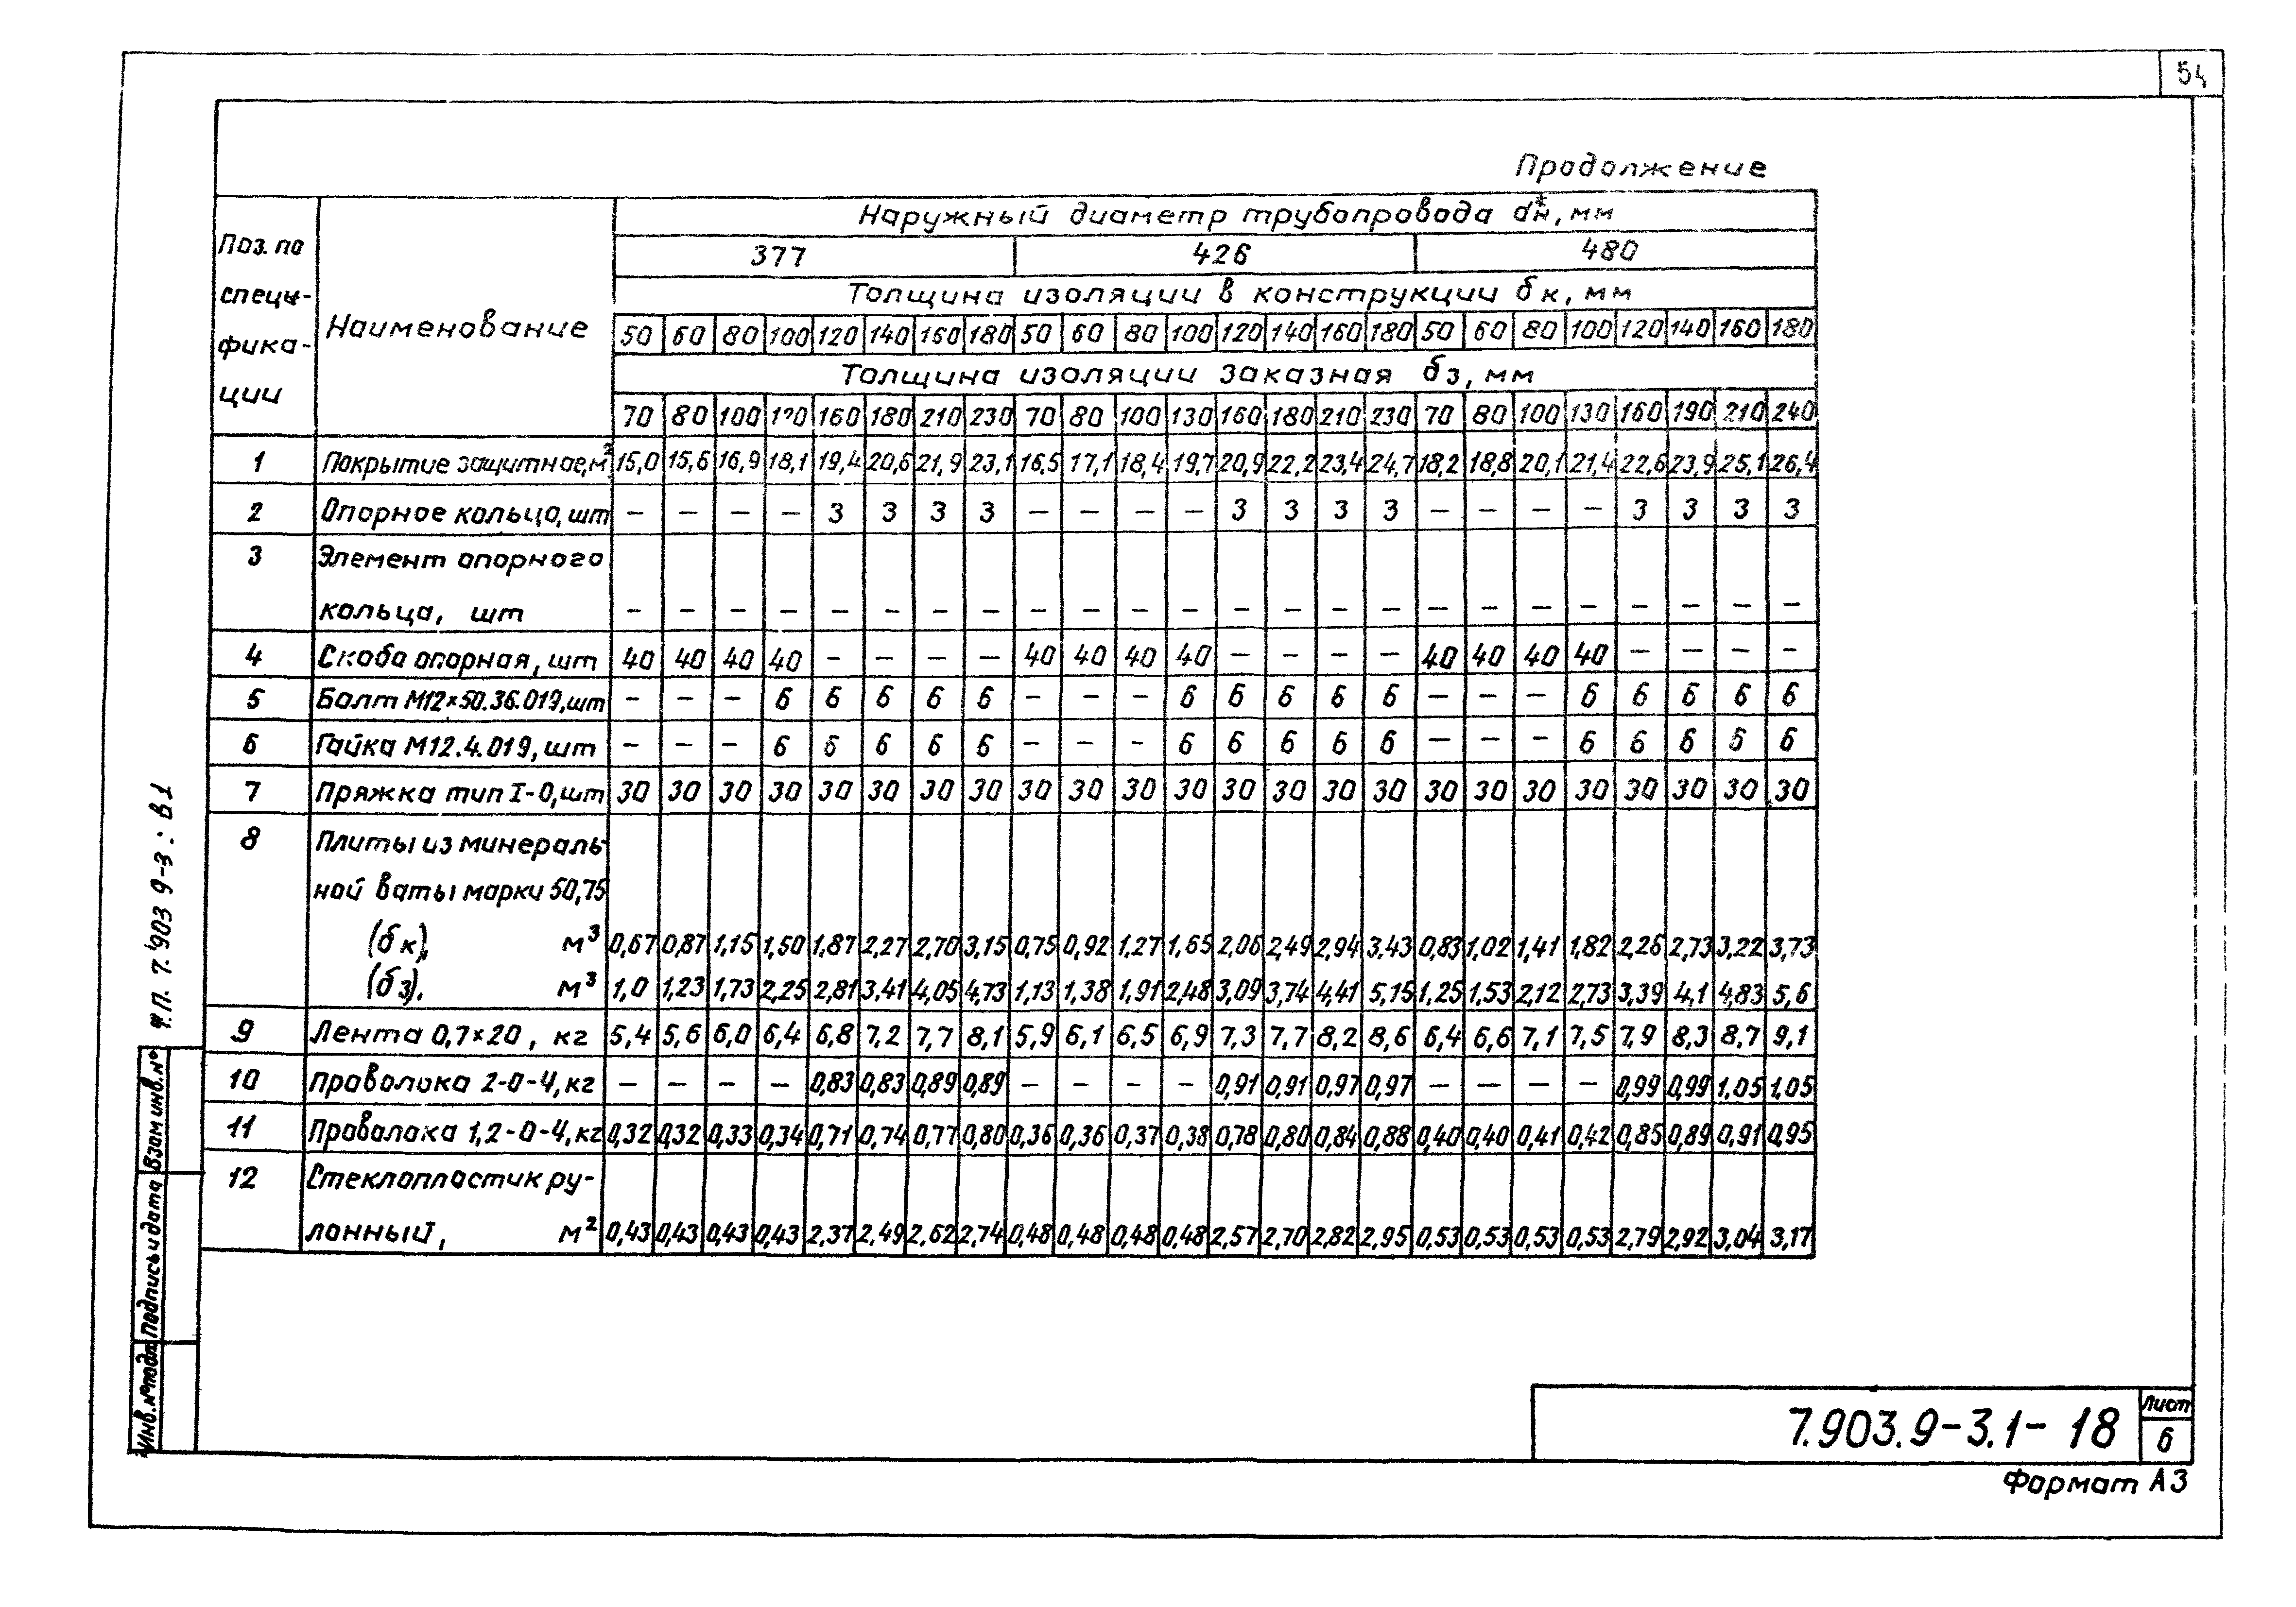 54
Продолжение
Поз. по специ-фика-ции
Наименование
Наружный диаметр трубопровода dн*, мм
377 426 480
Толщина изоляции в конструкции δк, мм
50 60 80 100 120 140 160 180 50 60 80 100 120 140 160 180 50 60 80 100 120 140 160 180
Толщина изоляции заказная δз, мм
70 80 100 130 160 180 210 230 70 80 100 130 160 180 210 230 70 80 100 130 160 190 210 240
1 Покрытие защитное, м² 15,0 15,6 16,9 18,1 19,4 20,6 21,9 23,1 16,5 17,1 18,4 19,7 20,9 22,2 23,4 24,7 18,2 18,8 20,1 21,4 22,6 23,9 25,1 26,4
2 Опорное кольцо, шт — — — — 3 3 3 3 — — — — 3 3 3 3 — — — — 3 3 3 3
3 Элемент опорного
кольца, шт — — — — — — — — — — — — — — — — — — — — — — — —
4 Скоба опорная, шт 40 40 40 40 — — — — 40 40 40 40 — — — — 40 40 40 40 — — — —
5 Болт М12×50.36.019, шт — — — 6 6 6 6 6 — — — 6 6 6 6 6 — — — 6 6 6 6 6
6 Гайка М12.4.019, шт — — — 6 6 6 6 6 — — — 6 6 6 6 6 — — — 6 6 6 6 6
7 Пряжка тип I-0, шт 30 30 30 30 30 30 30 30 30 30 30 30 30 30 30 30 30 30 30 30 30 30 30 30
8 Плиты из минераль-
ной ваты марки 50,75
(δк), м³ 0,67 0,87 1,15 1,50 1,87 2,27 2,70 3,15 0,75 0,92 1,27 1,65 2,06 2,49 2,94 3,43 0,83 1,02 1,41 1,82 2,26 2,73 3,22 3,73
(δз), м³ 1,0 1,23 1,73 2,25 2,81 3,41 4,05 4,73 1,13 1,38 1,91 2,48 3,09 3,74 4,41 5,15 1,25 1,53 2,12 2,73 3,39 4,1 4,83 5,6
9 Лента 0,7×20, кг 5,4 5,6 6,0 6,4 6,8 7,2 7,7 8,1 5,9 6,1 6,5 6,9 7,3 7,7 8,2 8,6 6,4 6,6 7,1 7,5 7,9 8,3 8,7 9,1
10 Проволока 2-0-4, кг — — — — 0,83 0,83 0,89 0,89 — — — — 0,91 0,91 0,97 0,97 — — — — 0,99 0,99 1,05 1,05
11 Проволока 1,2-0-4, кг 0,32 0,32 0,33 0,34 0,71 0,74 0,77 0,80 0,36 0,36 0,37 0,38 0,78 0,80 0,84 0,88 0,40 0,40 0,41 0,42 0,85 0,89 0,91 0,95
12 Стеклопластик ру-
лонный, м² 0,43 0,43 0,43 0,43 2,37 2,49 2,62 2,74 0,48 0,48 0,48 0,48 2,57 2,70 2,82 2,95 0,53 0,53 0,53 0,53 2,79 2,92 3,04 3,17
Т.П. 7.903 9-3 : в1
Взам инв. №
Подпись и дата
Инв. № подл.
7.903.9-3.1-18
Лист
6
Формат А3